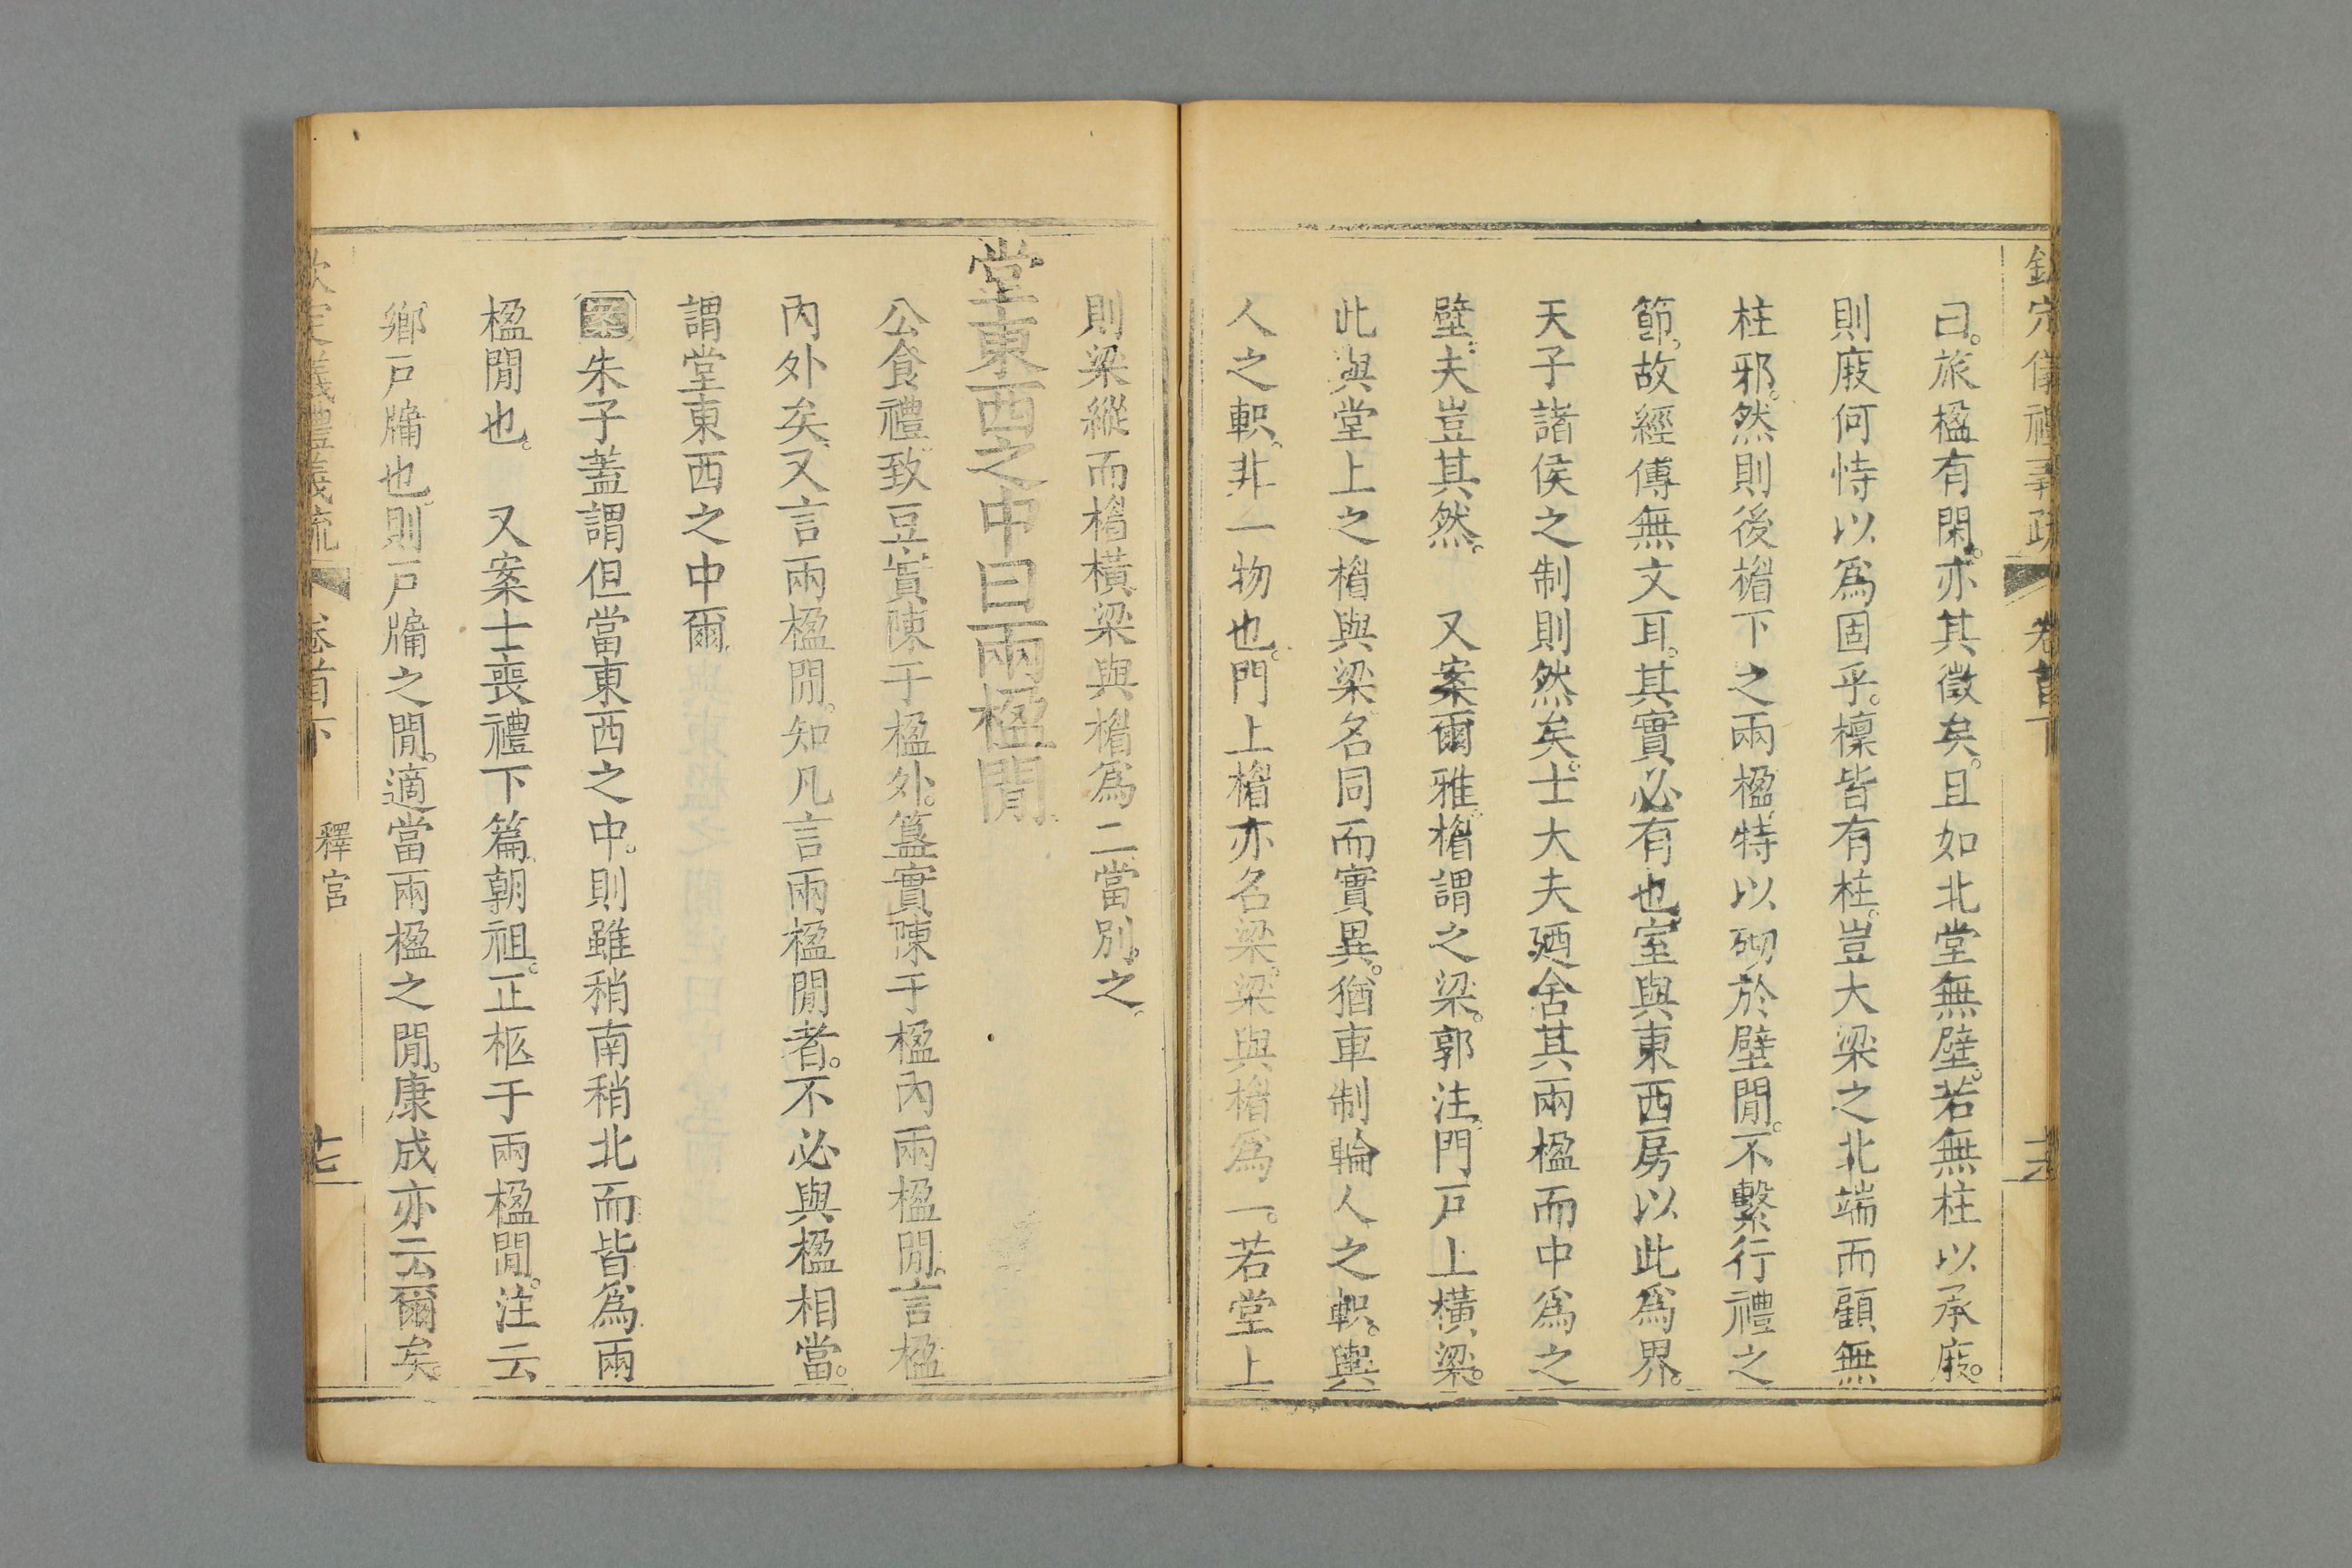 欽定儀禮義疏 卷首下
曰。旅楹有閑。亦其徵矣。且如北堂無壁。若無柱以承庪。
則庪何恃以爲固乎。檁皆有柱。豈大梁之北端而顧無
柱邪。然則後楣下之兩楹。特以砌於壁閒。不繫行禮之
節。故經傳無文耳。其實必有也。室與東西房以此爲界。
天子諸侯之制則然矣。士大夫廼舍其兩楹而中爲之
壁。夫豈其然。 又案爾雅。楣謂之梁。郭注。門戸上橫梁。
此與堂上之楣與梁名同而實異。猶車制輪人之軹。輿
人之軹。非一物也。門上楣亦名梁。梁與楣爲一。若堂上
則梁縱而楣橫。梁與楣爲二。當別之。
堂東西之中曰兩楹閒
公食禮。致豆實陳于楹外。簋實陳于楹內兩楹閒。言楹
內外矣。又言兩楹閒。知凡言兩楹閒者。不必與楹相當。
謂堂東西之中爾。
案朱子蓋謂但當東西之中。則雖稍南稍北而皆爲兩
楹閒也。 又案士喪禮下篇。朝祖。正柩于兩楹閒。注云
鄉戸牖也。則戸牖之閒。適當兩楹之閒。康成亦云爾矣。
欽定儀禮義疏 卷首下 釋宮 十七